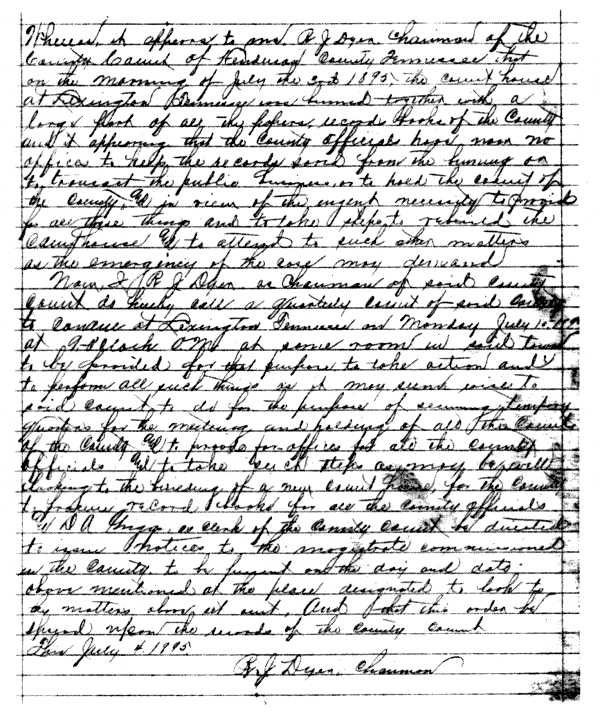 Whereas, it appears to me, R J Dyer Chairman of the
County Court of Henderson County Tennessee that
on the morning of July the 3rd 1895, the court house
at Lexington Tennessee was burned together with a
large part of all the papers, records books of the County
and it appearing that the County officials have now no
offices to keep the records saved from the burning or
to transact the public business or to hold the court of
the County, & in view of the urgent necessity to provide
for all these things and to take steps to rebuild the
Courthouse & to attend to such other matters
as the emergency of the case may demand
Now, I, R J Dyer as Chairman of said County
Court do hereby call a quarterly court of said County
to convene at Lexington Tennessee on Monday July
at 9 oclock at some room in said town
to be provided for that purpose to take action and
to perform all such things as it may seem wise to
said court to do for the purpose of securing tempory
quarters for the meeting and holding of all the Courts
of the County & to provide for offices for all the County
officials & to take such steps as may be well
looking to the building of a new Court House for the County
to procure record books for all the County officials
& D A as clerk of the County Court be directed
to issue notices to the magistrate commissioned
in the County to be present on the day and date
above mentioned at the place designated to look to
any matters above set out, And that this order be
spread upon the records of the County Court
This July 4 1895
R. J. Dyer, Chairman